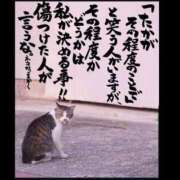 「たかが
その程度のことで」
と笑う人がいますが、
その程度か
どうかは
私が決める事!!
傷つけた人が
言うな。